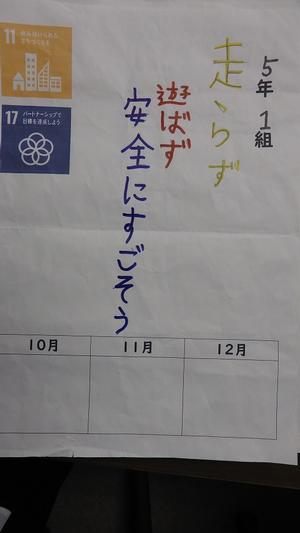 5年1組
走らず
遊ばず
安全にすごそう
11 住み続けられる
まちづくりを
17 パートナーシップで
目標を達成しよう
10月 11月 12月